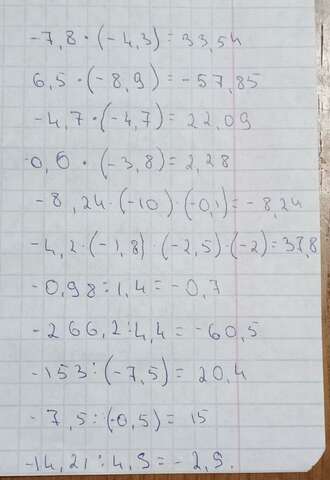 -7,8 · (-4,3) = 33,54
6,5 · (-8,9) = -57,85
-4,7 · (-4,7) = 22,09
-0,6 · (-3,8) = 2,28
-8,24 · (-10) · (-0,1) = -8,24
-4,2 · (-1,8) · (-2,5) · (-2) = 37,8
-0,98 : 1,4 = -0,7
-266,2 : 4,4 = -60,5
-153 : (-7,5) = 20,4
-7,5 : (-0,5) = 15
-14,21 : 4,9 = -2,9.